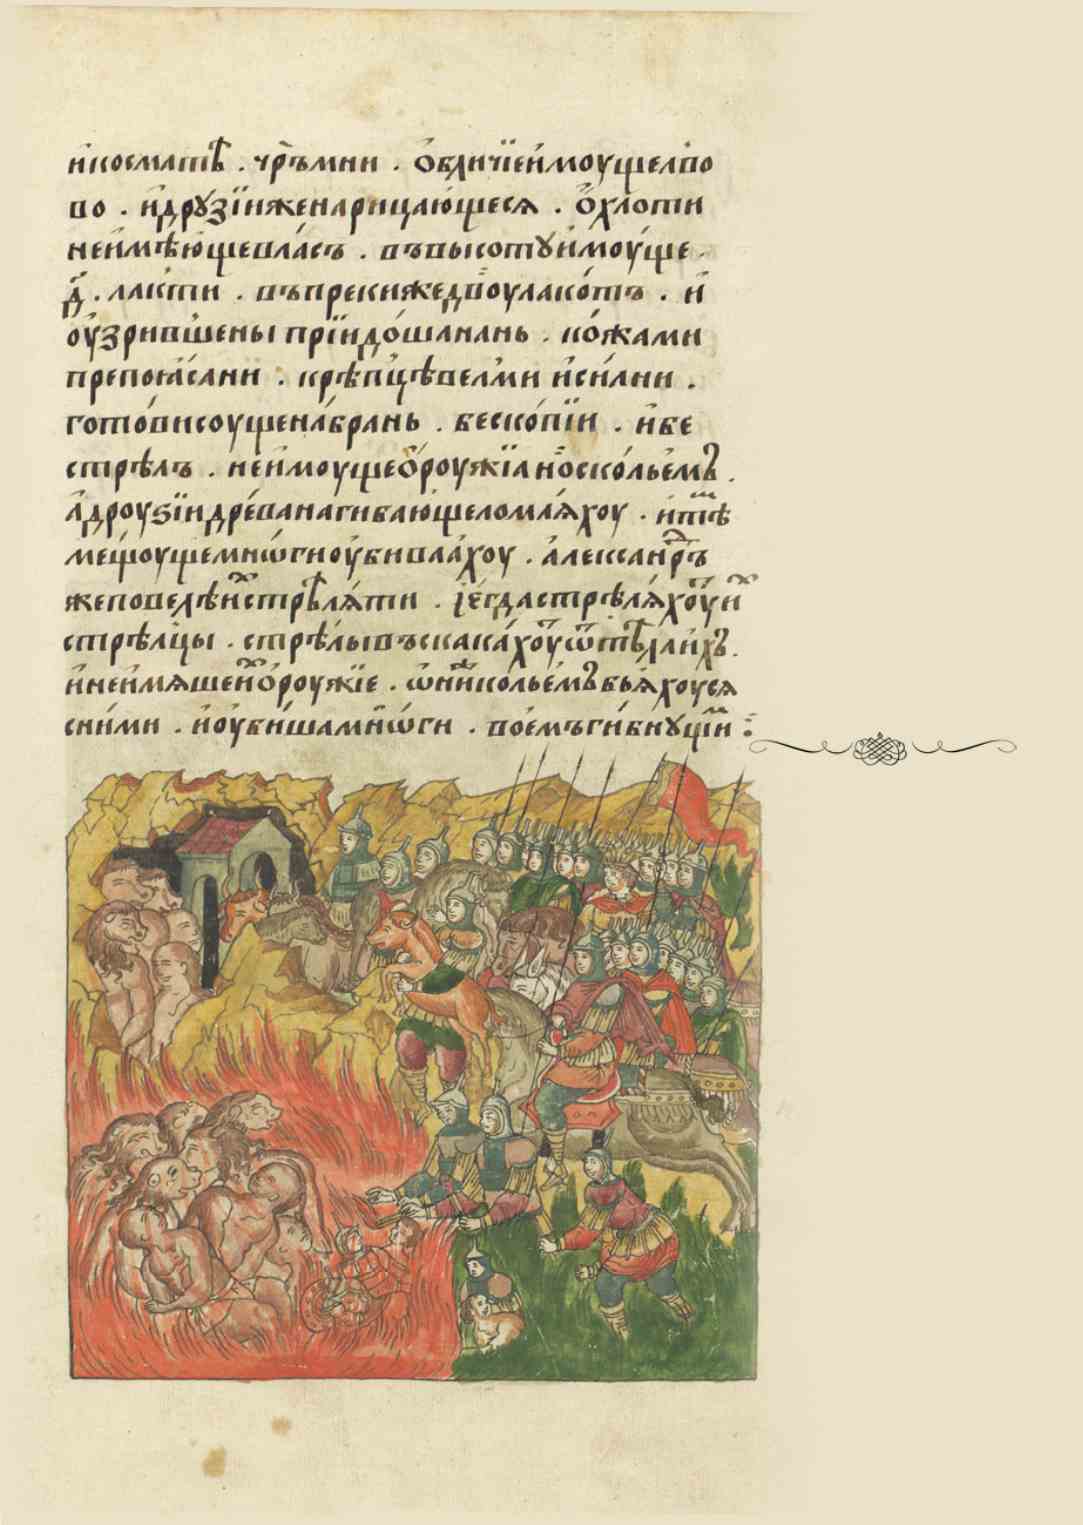 и космате . чръмни . Обличїе имоуще лво
во . и друзїи иже нарицающеся . Охлоти
не имѣюще власъ . въ высотꙋ имоуще
д҃ . лакти . въпреки же двоу лакотъ . и
оузривше ны прїидоша на нь . кожами
препоꙗсани . крѣпцѣ велми и силни .
готови соуще на брань . бес копїи . и бе
стрѣлъ . не имоуще ороужїа но скольемъ .
а дроуѕїи древа нагибающе ломаяхоу . и тѣ
мещоуще мнѡги оубивлахоу . александръ
же повелѣ их стрѣляти . їегда стрѣляхоу их
стрѣлцы . стрѣлы въскакахоу ѿ тѣл их .
и не имяше их ороужїе . ѡни кольемъ бьяхоуся
с ними . и оубиша мнѡги . воемъ гибнꙋщим :